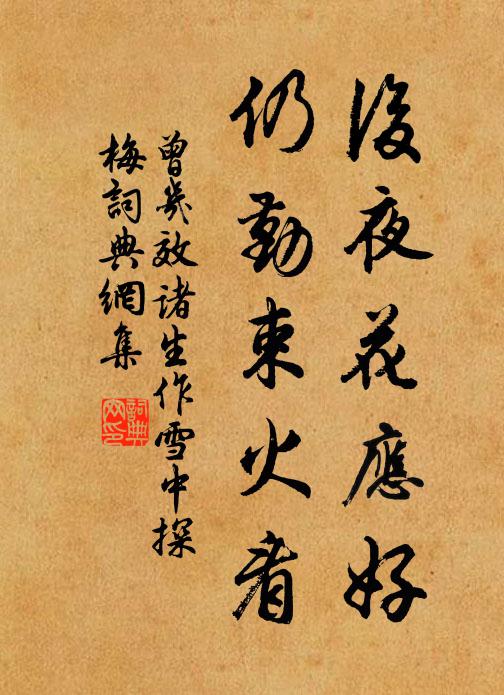 後夜花應好
仍勤束火看
曾幾效諸生作雪中探
梅詞典網集
詞典
网印